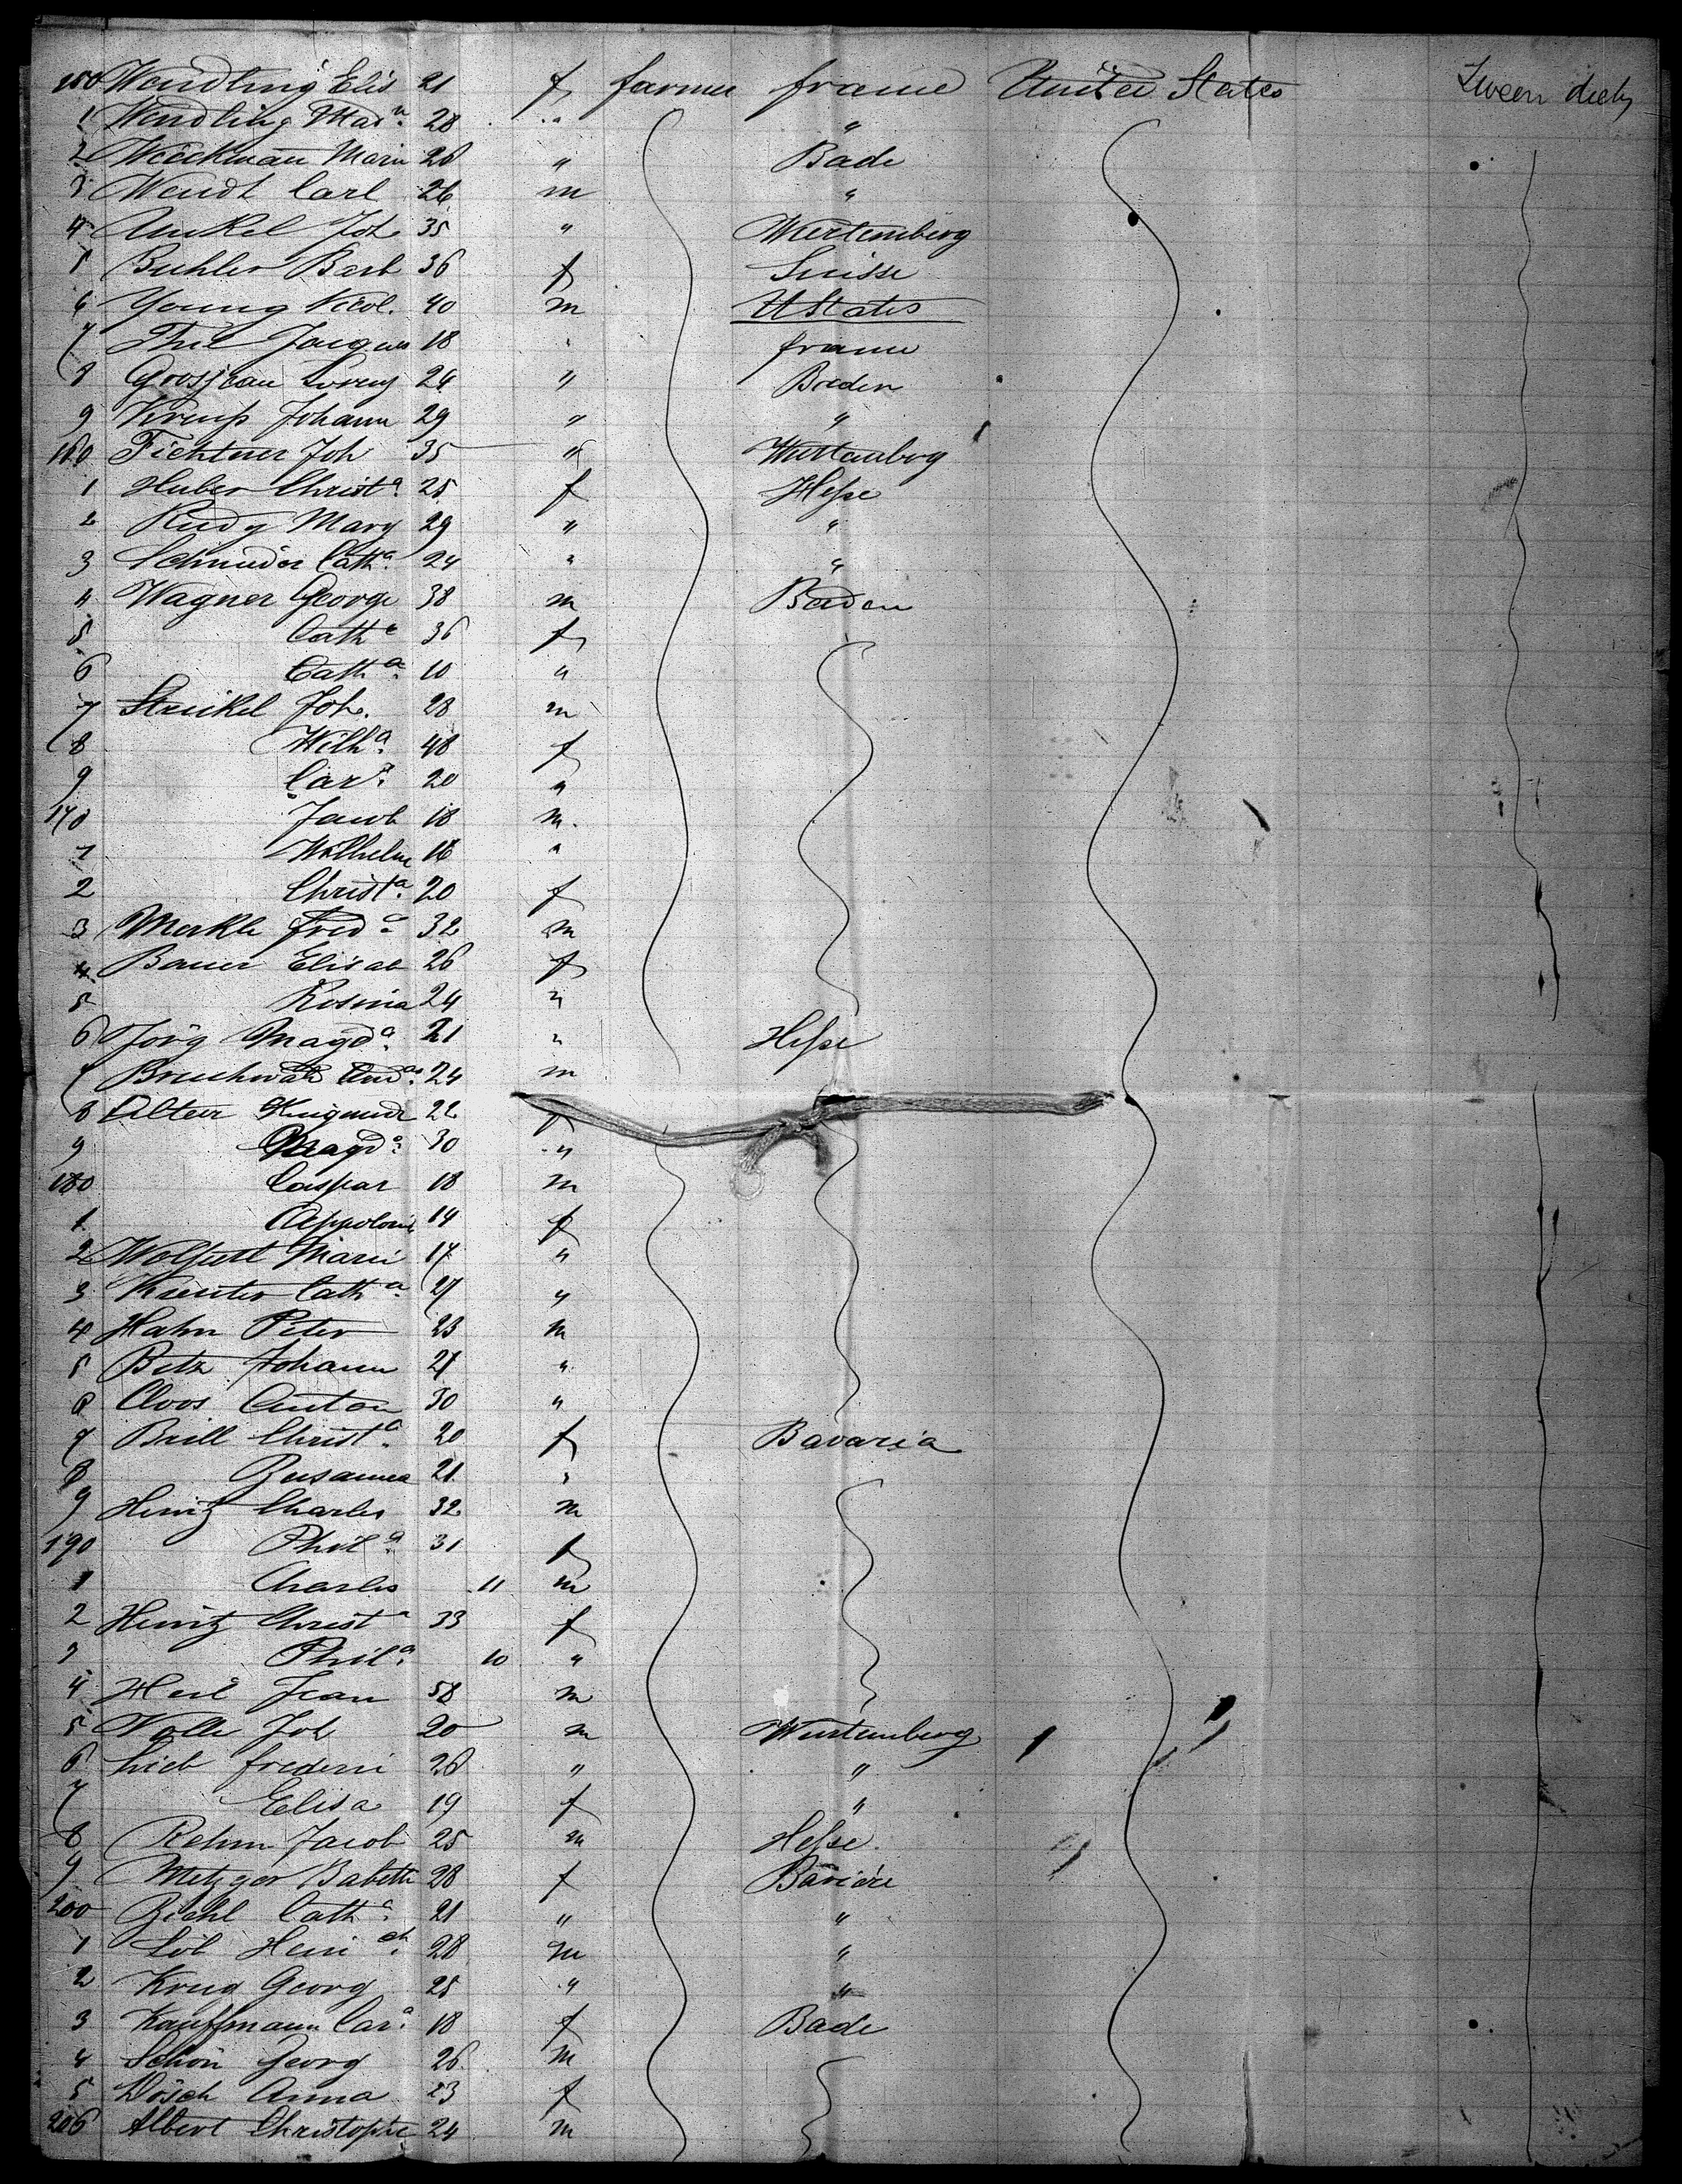 150 Wendling Elis 21 f farmer france United States Tween decks
1 Wendling Mad a. 28 " "
2 Marie 28 " Bade
3 Wendt Carl 26 m "
4 Unkel Joh 35 " Wurtemberg
5 Buhler Barb 36 f Suisse
6 Young Nicol. 40 m UStates
7 Jacques 18 " france
8 Grosjean Lorenz 24 " Baden
9 Johann 29 " "
160 Fichterer Joh 35 " Wurtemberg
1 Huber Christ a. 25 f Hesse
2 Rudy Mary 29 " "
3 Schnieder Cath a. 24 " "
4 Wagner George 38 m Baden
5 Cath a 36 f
6 Cath a. 10 "
7 Strickel Joh. 28 m
8 Wilh a. 48 f
9 Car a. 20 "
170 Jacob 18 m.
1 Wilhelm 16 "
2 Christ a. 20 f
3 Merkle fred 32 m
4 Bauer Elisab 26 f
5 Rosina 24 "
6 Jörg Magd a. 21 " Hesse
7 24 m
8 22 f
9 Magd a. 30 "
180 Caspar 18 m
1 Appolonie 14 f
2 Marie 17 "
3 Cath a. 27 "
4 Hahn Peter 23 m
5 Betz Johann 27 "
6 Cloos Anton 30 "
7 Brill Christ a. 20 f Bavaria
8 Susanna 21 "
9 Heintz Charles 32 m
190 Phil a. 31 f
1 Charles 11 m
2 Heintz Christ a 33 f
3 Phil a. 10 "
4 Jean 58 m
5 Nolle Joh 20 m Wurtemberg
6 Lieb frederic 26 " "
7 Elisa 19 f "
8 Rehm Jacob 25 m Hesse.
9 Metzger Babette 28 f Baviere
200 Cath a. 21 " "
1 Löb Heinr ch. 28 m "
2 Krug Georg 25 " "
3 Kauffmann Car a. 18 f Bade
4 Schön Georg 26 m
5 Dösch Anna 23 f
206 Albert Christophe 24 m